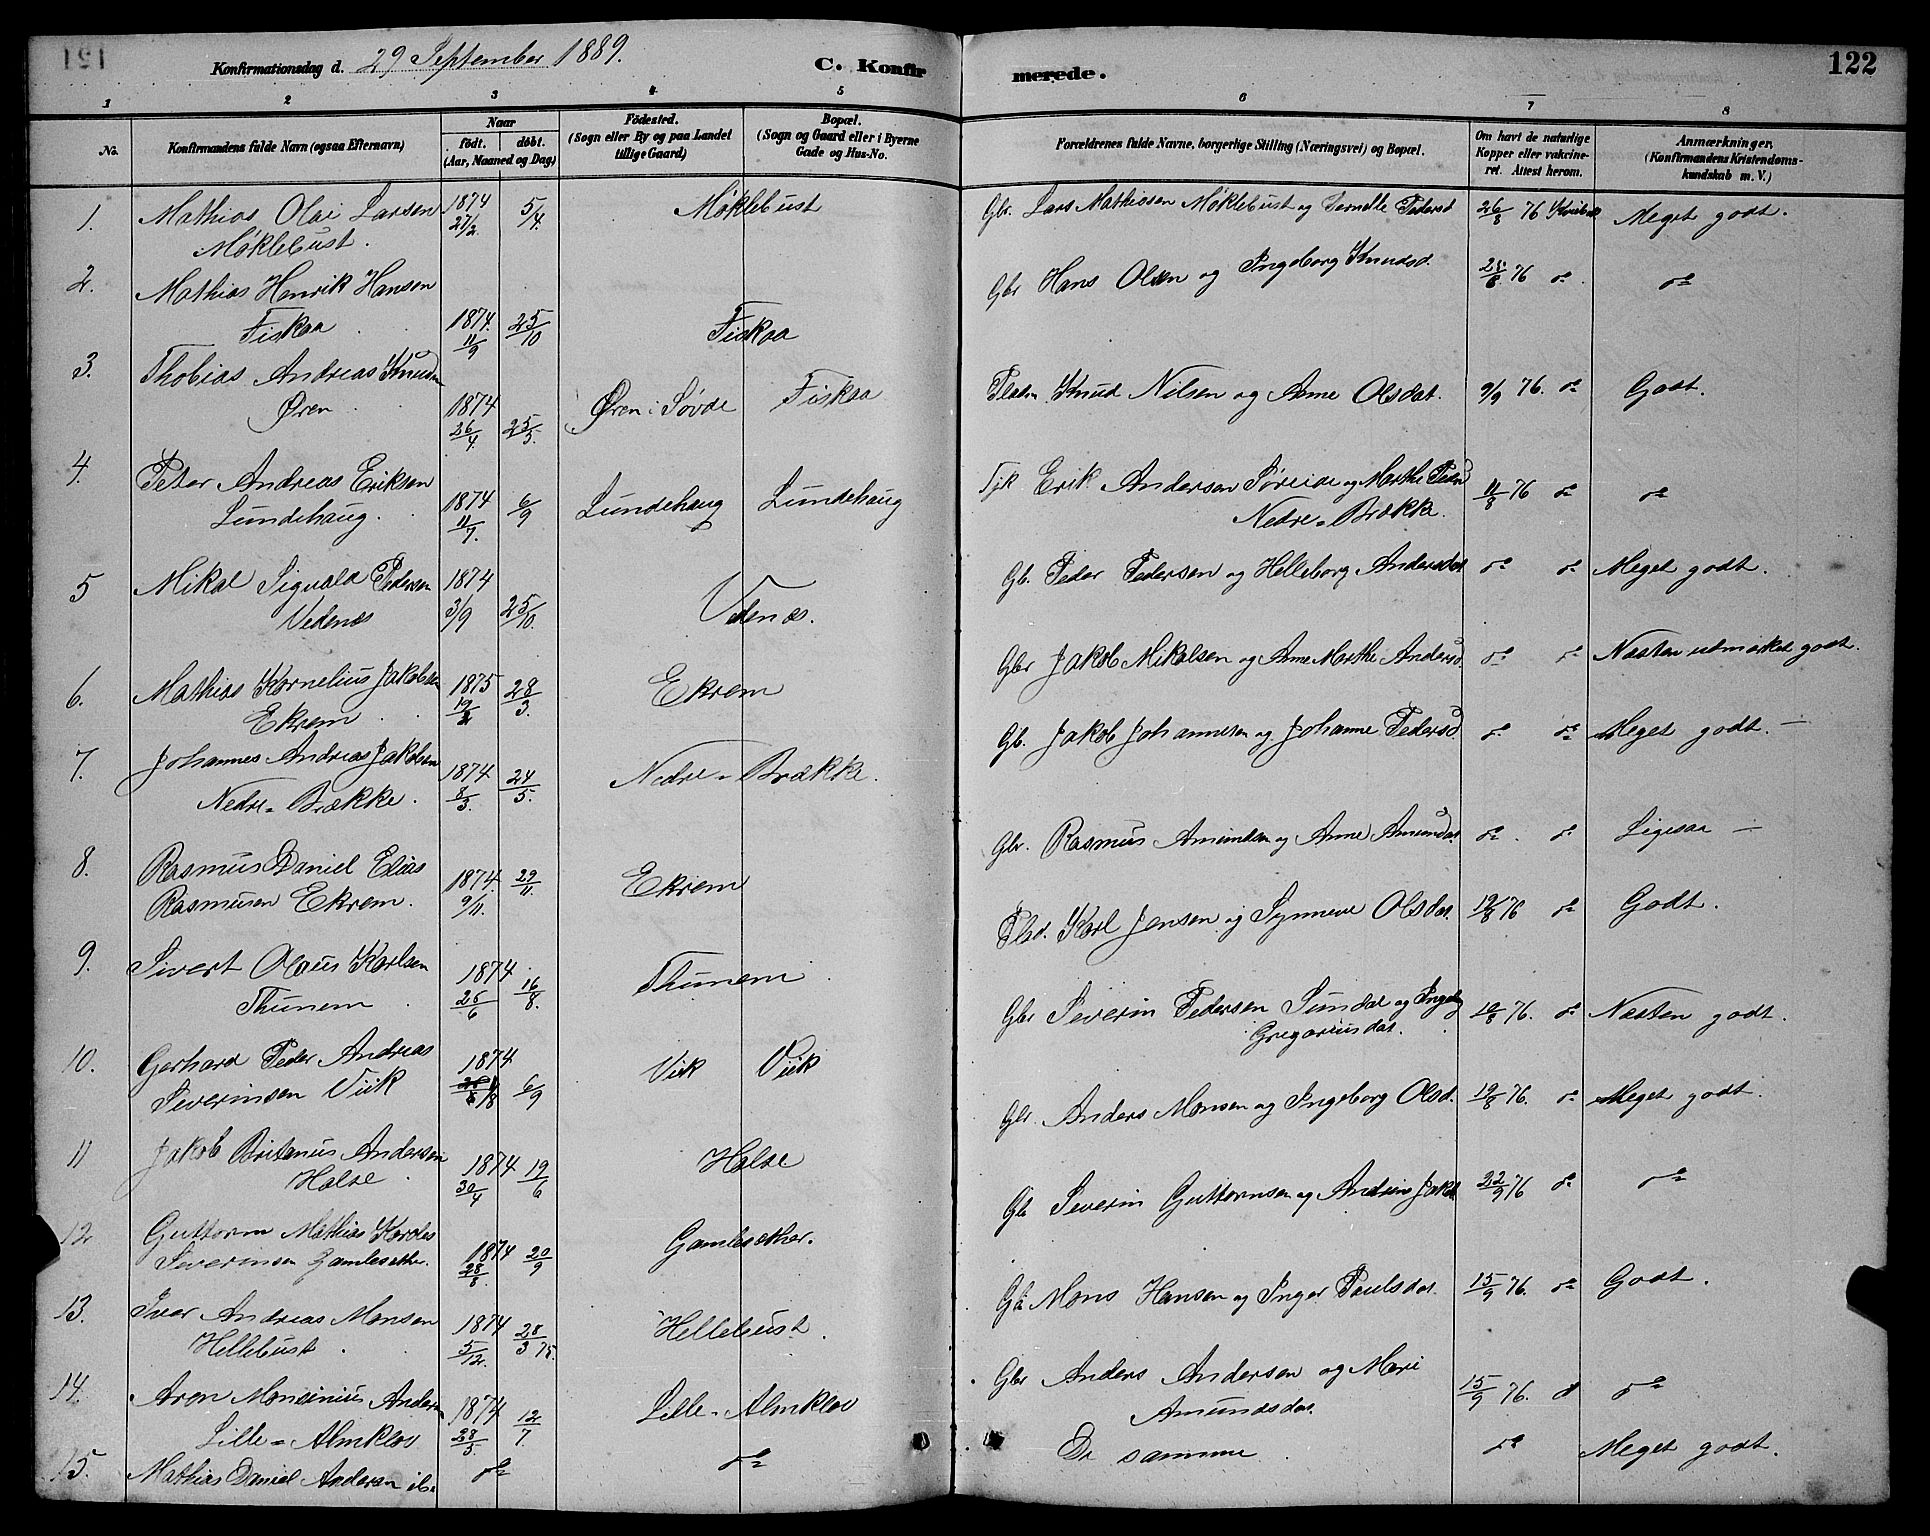 Konfirmationsdag d. 29 September 1889. C. Konfirmerede. 122
1 2 3 4 5 6 7 8
No. Konfirmandens fulde Navn (ogsaa Efternavn) Naar födt. döbt. (Aar, Maaned og Dag) Födested. (Sogn eller By og paa Landet tillige Gaard) Bopæl. (Sogn og Gaard eller i Byerne Gade og Hus-No. Forældrenes fulde Navne, borgerlige Stilling (Næringsvei) og Bopæl. Om havt de naturlige Kopper eller vakcineret. Attest herom. Anmærkninger, (Konfirmandens Kristendomskundskab m. V.)
1. Mathias Olai Larsen 1874 5/4. Møklebust Gbr. Lars Mathiasen Møklebust og Pedersd 26/8 76 Meget godt.
Møklebust. 27/2.
2. Mathias Henrik Hansen Gbr Hans Olsen og Ingeborg Knudsd. 25/8 76 do do
Fiskaa 1874. 11/9 25/10 Fiskaa
3. Thobias Andreas Knudsen
Øren 1874 26/4 25/5. Øren i Søvde Fiskaa Pladsm. Knud Nilsen og Anne Olsdat. 9/9 76. do Godt.
4. Peter Andreas Eriksen
Lundehaug. 1874 11/7. 6/9 Lundehaug Lundehaug Erik Andersen Søreide og Marthe Pedsd 11/8 76 do do
Nedre-Brække.
5 Mikal Sigvald Pedersen 1874 Gb. Peder Pedersen og Helleborg Andersdat do do Meget godt.
Vedenæs 3/9 25/10. Vedenæs.
6. Mathias Kornelius Jakobsen 1875 28/3. Ekrem Gbr Jakob Mikalsen og Ane Marthe Andersd. do do Næsten udmærket godt.
Ekrem 19/2
7. Johannes Andreas Jakobsen 1874 24/5. Nedre-Brække. Gb. Jakob Johannesen og Johanne Pedersd do do Meget godt. —
Nedre-Brække. 8/3.
8. Rasmus Daniel Elias 1874. 29/11. Ekrem Gbr. Rasmus Amundsen og Anne Amundsdat. do do Ligesaa —
Rasmusen Ekrem. 9/11.
9. Sivert Olaus Karlsen 1874 16/8. Thunem Plsd. Karl Jensen og Synneve Olsdat. 19/8 76 do Godt.
Thunem 25/6
10. Gerhard Peder Andreas 1874 6/9 Viik Viik Gbr Severin Pedersen Sundal og Ingeborg 10/8 76. do Næsten godt.
Severinsen Viik 1/8 Gregoriusdat.
11 Jakob Britanus Andersen 1874 19/6 Halse Gbr. Anders Monsen og Ingeborg Olsd. 19/8 76. do Meget godt.
Halse 30/4
12 Guttorm Mathias Kordes 1874 20/9 Gamlesæther. Gb Severin Guttormsen og Andrine Jakd 22/9 76 do do
Severinsen Gamlesæther. 28/8
13. Ivar Andreas Monsen 1874 28/3 75. Hellebust. Gb Mons Hansen og Inger Paulsdat. 15/9 76. do Godt.
Hellebust 5/12.
14. Aron Monsinius Andersen 1874 12/7. Lille-Almklov Gbr Anders Andersen og Mari 15/9 76. do do
Lille-Almklov 28/5. Amundsdat.
15. Mathias Daniel Andersen ib. do do De samme do Meget godt.